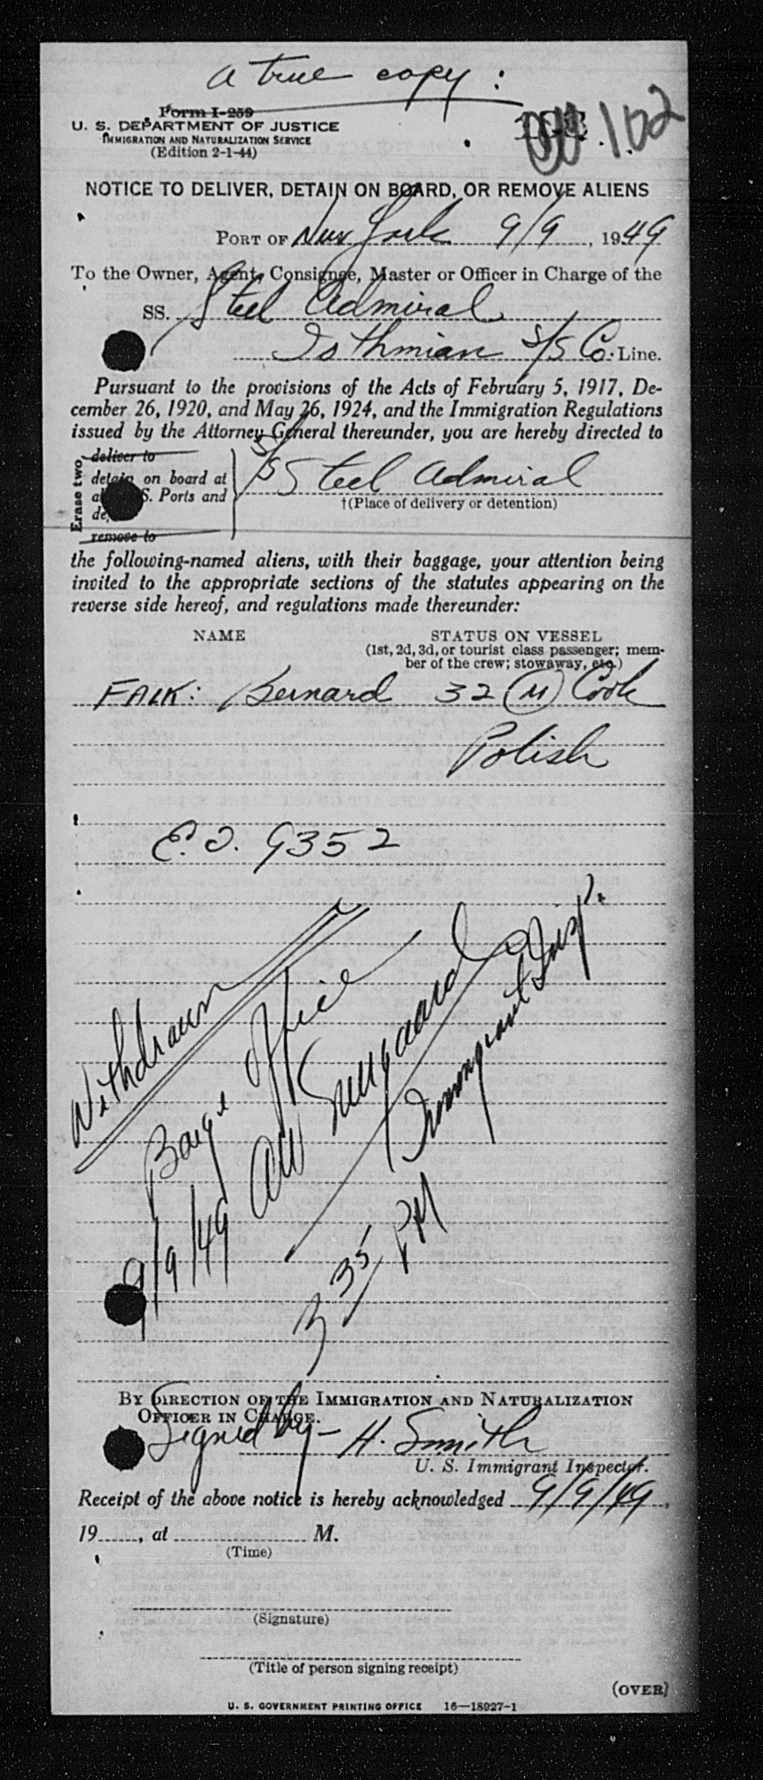 a true copy:
Form I-259
U. S. DEPARTMENT OF JUSTICE
IMMIGRATION AND NATURALIZATION SERVICE
(Edition 2-1-44)
102
NOTICE TO DELIVER, DETAIN ON BOARD, OR REMOVE ALIENS
PORT OF New York 9/9, 1949
To the Owner, Agent, Consignee, Master or Officer in Charge of the
SS. Steel Admiral
Isthmian S/S Co. Line.
Pursuant to the provisions of the Acts of February 5, 1917, De-
cember 26, 1920, and May 26, 1924, and the Immigration Regulations
issued by the Attorney General thereunder, you are hereby directed to
Erase two
deliver to
detain on board at
S. Ports and
remove to
S/S Steel Admiral
†(Place of delivery or detention)
the following-named aliens, with their baggage, your attention being
invited to the appropriate sections of the statutes appearing on the
reverse side hereof, and regulations made thereunder:
NAME STATUS ON VESSEL
(1st, 2d, 3d, or tourist class passenger; mem-
ber of the crew; stowaway, etc.)
FALK: Bernard 32 (M) Cook
Polish
E.O. 9352
Withdrawn
Barge Office
9/9/49
Immigrant Insp.
3 35 PM
BY DIRECTION OF THE IMMIGRATION AND NATURALIZATION
OFFICER IN CHARGE.
Signed by - H. Smith
U. S. Immigrant Inspector.
Receipt of the above notice is hereby acknowledged 9/9/49,
19......, at .................... M.
(Time)
(Signature)
(Title of person signing receipt)
(OVER)
U. S. GOVERNMENT PRINTING OFFICE 16—18927-1